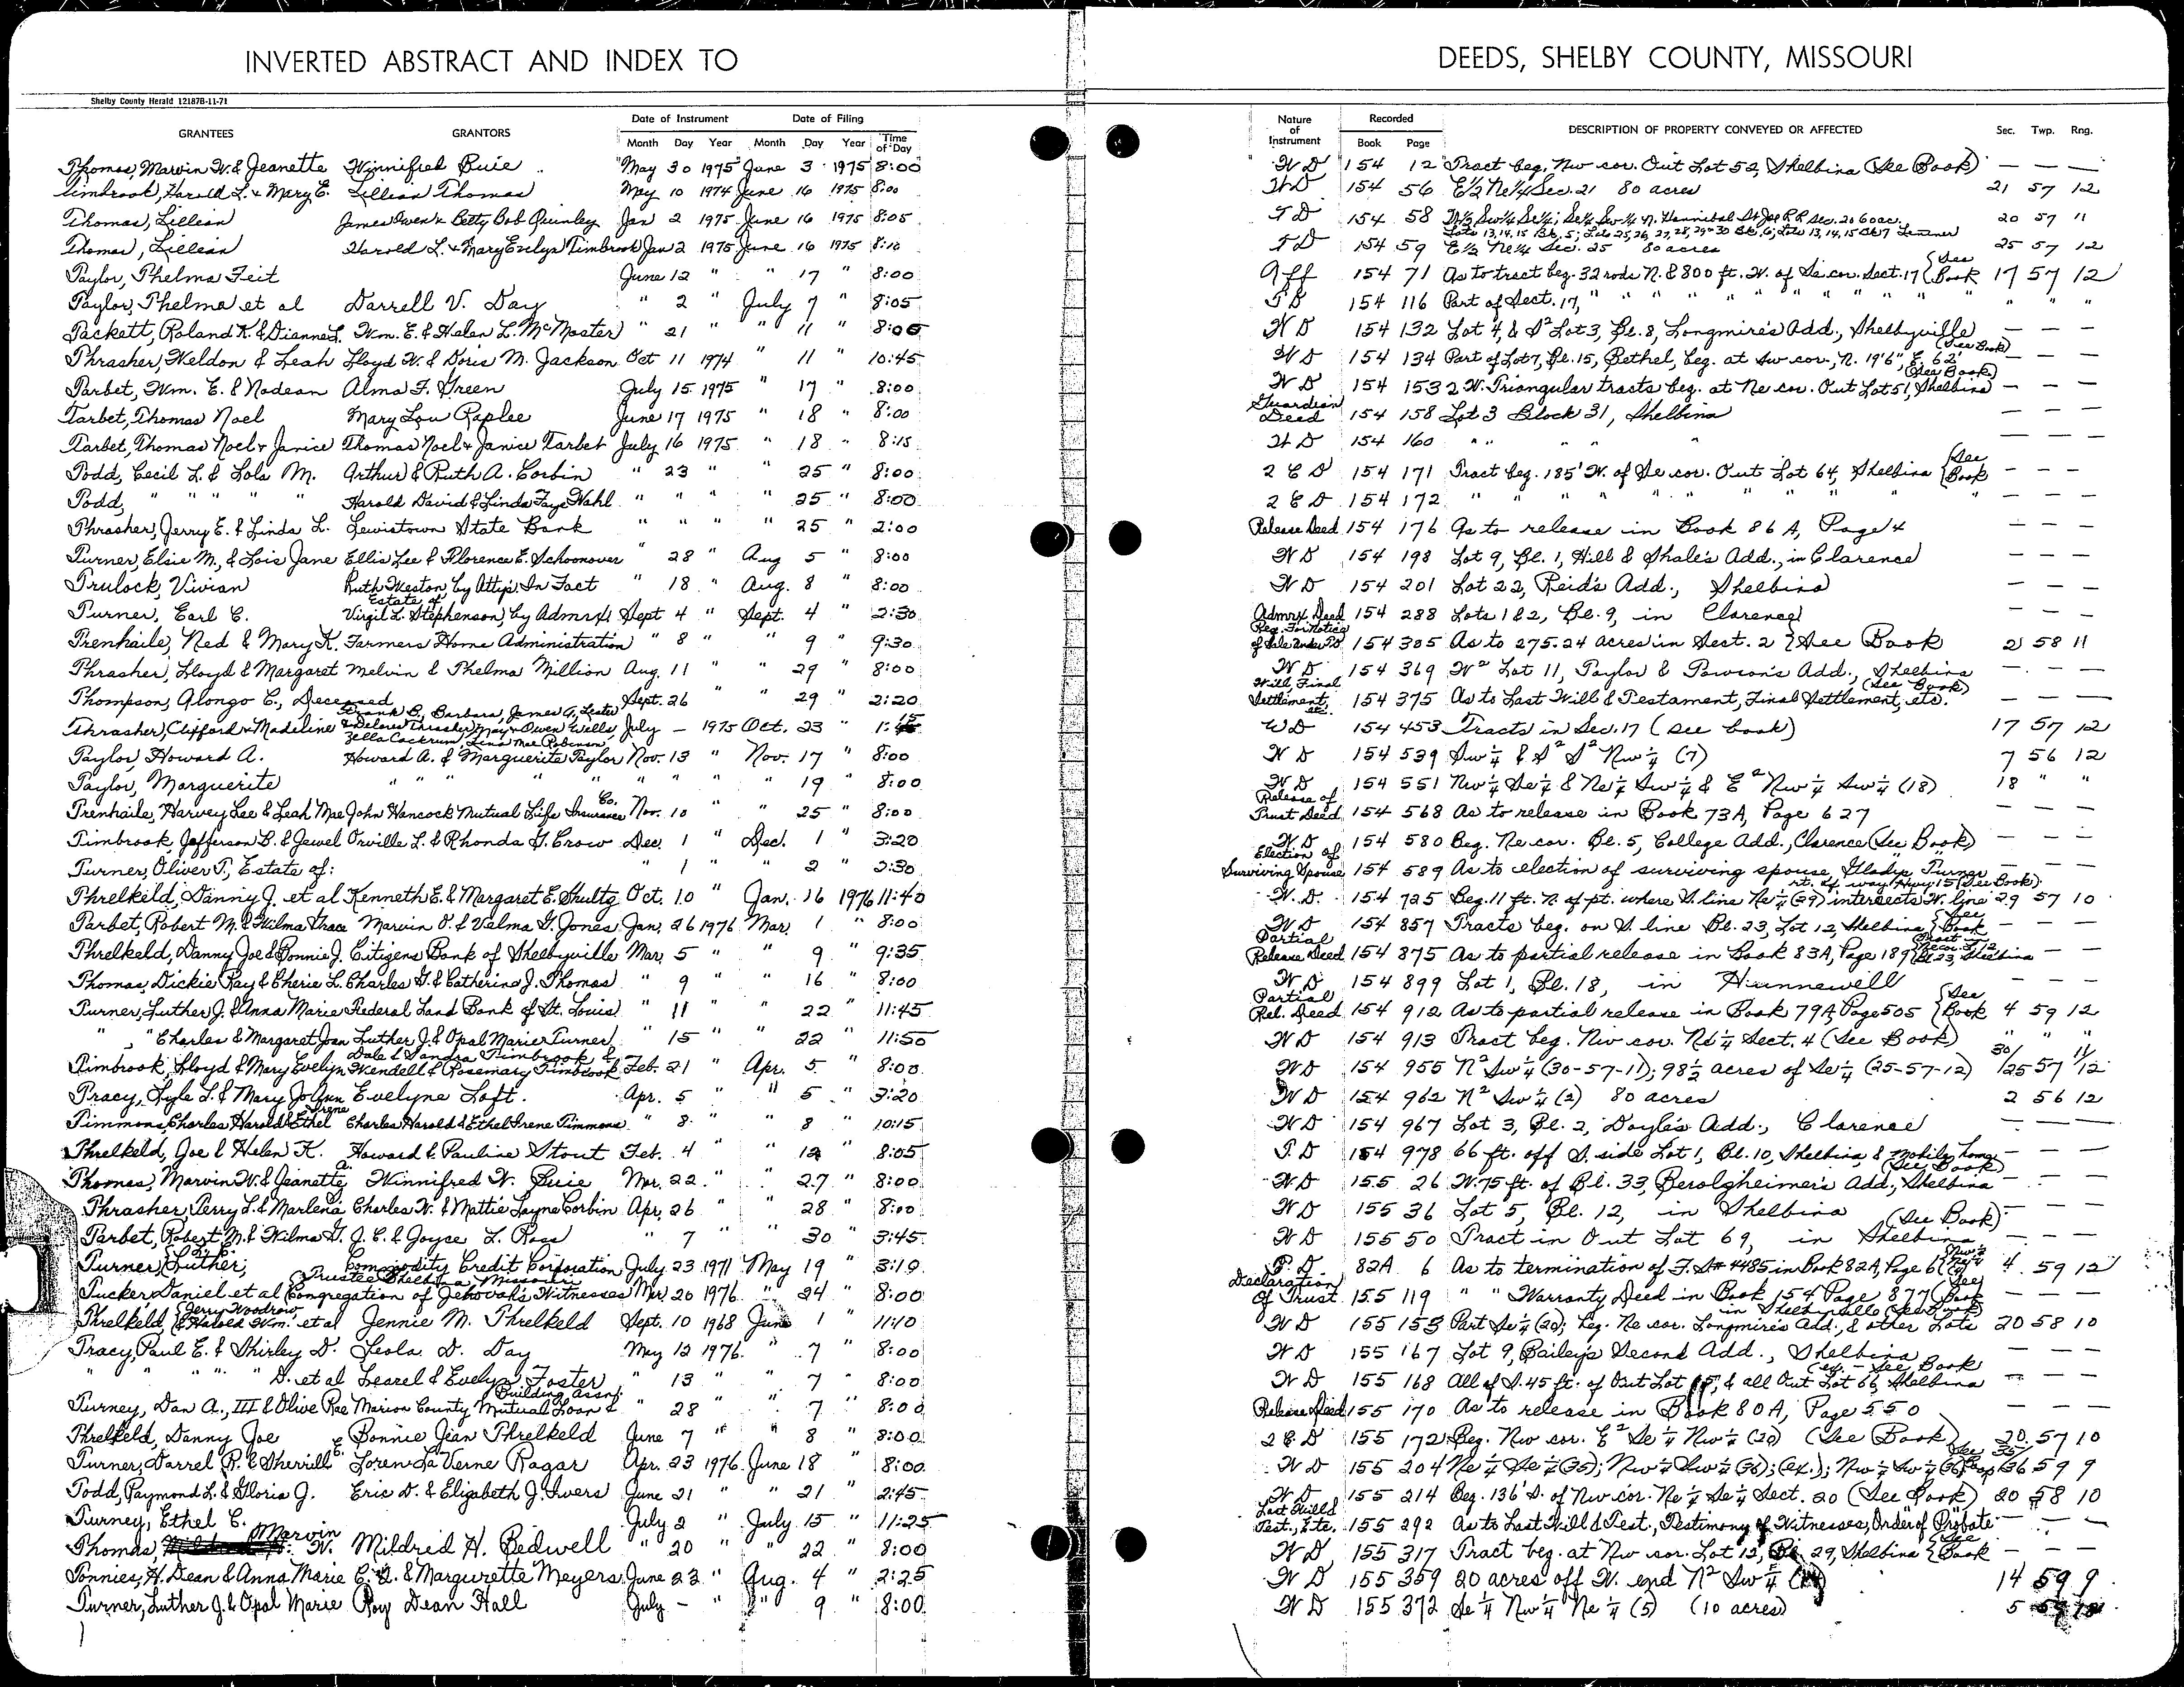 INVERTED ABSTRACT AND INDEX TO DEEDS, SHELBY COUNTY, MISSOURI
Shelby County Herald 12187B-11-71
GRANTEES GRANTORS Date of Instrument Month Day Year Date of Filing Month Day Year Time of Day Nature of Instrument Recorded Book Page DESCRIPTION OF PROPERTY CONVEYED OR AFFECTED Sec. Twp. Rng.
Thomas, Marvin W. & Jeanette Winnifred Buie May 30 1975 June 3 1975 8:00 WD 154 12 Tract beg. Nw cor. Out Lot 52, Shelbina (See Book) — — —
Timbrook, Harold L. & Mary E. Lillian Thomas May 10 1974 June 16 1975 8:00 WD 154 56 E½ Ne¼ Sec. 21 80 acres 21 57 12
Thomas, Lillian James Owen & Betty Bob Quinley Jan 2 1975 June 16 1975 8:05 TD 154 58 N½ Sw¼ Se¼; Se¼ Sw¼ N. Hannibal St Joe RR Sec. 20 60 ac. Lots 13, 14, 15 Blk. 5; Lots 25, 26, 27, 28, 29 & 30 Blk. 6; Lots 13, 14, 15 Blk 7 Lentner 20 57 11
Thomas, Lillian Harold L. & Mary Evelyn Timbrook Jan 2 1975 June 16 1975 8:10 TD 154 59 E½ Ne¼ Sec. 25 80 acres 25 57 12
Taylor, Thelma Feit June 12 " " 17 " 8:00 Aff 154 71 As to tract beg. 32 rods N. & 800 ft. W. of Se cor. Sect. 17 {See Book 17 57 12
Taylor, Thelma et al Darrell V. Day " 2 " July 7 " 8:05 TD 154 116 Part of Sect. 17, " " " " " " " " " " " "
Tackett, Roland K. & Dianne L. Wm. E. & Helen L. McMaster " 21 " " 11 " 8:00 WD 154 132 Lot 4, & S² Lot 3, Bl. 8, Longmire's Add., Shelbyville — — —
Thrasher, Weldon & Leah Lloyd W. & Doris M. Jackson Oct 11 1974 " 11 " 10:45 WD 154 134 Part of Lot 7, Bl. 15, Bethel, beg. at Sw cor., N. 19'6", E. 62' (See Book) — — —
Tarbet, Wm. E. & Nadean Alma F. Green July 15 1975 " 17 " 8:00 WD 154 153 2 W. Triangular tracts beg. at Ne cor. Out Lot 51, Shelbina (See Book) — — —
Tarbet, Thomas Noel Mary Lou Raplee June 17 1975 " 18 " 8:00 Guardian Deed 154 158 Lot 3 Block 31, Shelbina — — —
Tarbet, Thomas Noel & Janice Thomas Noel & Janice Tarbet July 16 1975 " 18 " 8:15 WD 154 160 " " " " — — —
Todd, Cecil L. & Lola M. Arthur & Ruth A. Corbin " 23 " " 25 " 8:00 2 C D 154 171 Tract beg. 185' W. of Se cor. Out Lot 64, Shelbina {See Book — — —
Todd, " " " " Harold David & Linda Faye Wahl " " " " 25 " 8:00 2 C D 154 172 " " " " " " " " — — —
Thrasher, Jerry E. & Linda L. Lewistown State Bank " " " " 25 " 2:00 Release Deed 154 176 As to release in Book 86A, Page 4 — — —
Turner, Elsie M., & Lois Jane Ellis Lee & Florence E. Schoonover " 28 " Aug 5 " 8:00 WD 154 198 Lot 9, Bl. 1, Hill & Shale's Add., in Clarence — — —
Trulock, Vivian Ruth Weston by Atty's In Fact " 18 " Aug. 8 " 8:00 WD 154 201 Lot 22, Reid's Add., Shelbina — — —
Turner, Earl C. Estate of Virgil L. Stephenson, by Admrx Sept 4 " Sept. 4 " 2:30 Admrx Deed 154 288 Lots 1 & 2, Bl. 9, in Clarence — — —
Trenhaile, Ned & Mary K. Farmers Home Administration " 8 " " 9 " 9:30 Req. For Notice of Sale under TD 154 305 As to 275.24 acres in Sect. 2 {See Book 2 58 11
Thrasher, Lloyd & Margaret Melvin & Thelma Million Aug. 11 " " 29 " 8:00 WD 154 369 W² Lot 11, Taylor & Towson's Add., Shelbina (See Book) — — —
Thompson, Alongo C., Deceased Sept. 26 " " 29 " 2:20 Will, Final Settlement, etc. 154 375 As to Last Will & Testament, Final Settlement, etc. — — —
Thrasher, Clifford & Madeline Frank B., Barbara, James A., Lester & Delores Thrasher, May & Owen Wells, Zella Cockrum, Lena Mae Robinson July — 1975 Oct. 23 " WD 154 453 Tracts in Sec. 17 (see book) 17 57 12
Taylor, Howard A. Howard A. & Marguerite Taylor Nov. 13 " Nov. 17 " 8:00 WD 154 539 Sw¼ & S² S² Nw¼ (7) 7 56 12
Taylor, Marguerite " " " " " " " 19 " 8:00 WD 154 551 Nw¼ Se¼ & Ne¼ Sw¼ & E² Nw¼ Sw¼ (18) 18 " "
Trenhaile, Harvey Lee & Leah Mae John Hancock Mutual Life Insurance Co. Nov. 10 " " 25 " 8:00 Release of Trust Deed 154 568 As to release in Book 73A, Page 627 — — —
Timbrook, Jefferson B. & Jewel Orville L. & Rhonda G. Crow Dec. 1 " Dec. 1 " 3:20 WD 154 580 Beg. Ne cor. Bl. 5, College Add., Clarence (See Book) — — —
Turner, Oliver T., Estate of: " 1 " " 2 " 2:30 Election of Surviving Spouse 154 589 As to election of surviving spouse, Gladys Turner — — —
Threlkeld, Danny J. et al Kenneth E. & Margaret E. Shultz Oct. 10 " Jan. 16 1976 11:40 W.D. 154 725 Beg. 11 ft. N. of pt. where S. line Ne¼ (29) intersects W. line rt. of way Hwy 15 (See Book) 29 57 10
Tarbet, Robert M. & Wilma Grace Marvin O. & Velma G. Jones Jan. 26 1976 Mar. 1 " 8:00 WD 154 857 Tracts beg. on S. line Bl. 23, Lot 12, Shelbina {See Book — — —
Threlkeld, Danny Joe & Bonnie J. Citizens Bank of Shelbyville Mar. 5 " " 9 " 9:35 Partial Release Deed 154 875 As to partial release in Book 83A, Page 189 — — —
Thomas, Dickie Ray & Cherie L. Charles G. & Catherine J. Thomas " 9 " " 16 " 8:00 WD 154 899 Lot 1, Bl. 18, in Hunnewell — — —
Turner, Luther J. & Anna Marie Federal Land Bank of St. Louis " 11 " " 22 " 11:45 Partial Rel. Deed 154 912 As to partial release in Book 79A, Page 505 {See Book 4 59 12
" " Charles & Margaret Joan Luther J. & Opal Marie Turner " 15 " " 22 " 11:50 WD 154 913 Tract beg. Nw cor. Ne¼ Sect. 4 (See Book) " " "
Timbrook, Lloyd & Mary Evelyn Dale & Sandra Timbrook & Wendell & Rosemary Timbrook Feb. 21 " Apr. 5 " 8:00 WD 154 955 N² Sw¼ (30-57-11); 98½ acres of Se¼ (25-57-12) 30/25 57 11/12
Tracy, Lyle L. & Mary Jo Ann Evelyne Loft. Apr. 5 " " 5 " 3:20 WD 154 962 N² Sw¼ (2) 80 acres 2 56 12
Timmons, Charles Harold & Ethel Irene Charles Harold & Ethel Irene Timmons " 8 " " 8 " 10:15 WD 154 967 Lot 3, Bl. 2, Doyle's Add., Clarence — — —
Threlkeld, Joe & Helen K. Howard & Pauline Stout Feb. 4 " " 12 " 8:05 T.D 154 978 66 ft. off S. side Lot 1, Bl. 10, Shelbina, & mobile home (See Book) — — —
Thomas, Marvin W. & Jeanette A. Winnifred W. Buie Mar. 22 " " 27 " 8:00 WD 155 26 W. 75 ft. of Bl. 33, Berolgheimer's Add., Shelbina — — —
Thrasher, Terry L. & Marlena Charles W. & Mattie Layne Corbin Apr. 26 " " 28 " 8:00 WD 155 36 Lot 5, Bl. 12, in Shelbina — — —
Tarbet, Robert M. & Wilma G. J. C. & Joyce L. Ross " 7 " " 30 " 3:45 WD 155 50 Tract in Out Lot 69, in Shelbina (See Book) — — —
Turner, Luther, Commodity Credit Corporation July 23 1971 May 19 " 3:19 T.D. 82A 6 As to termination of F.S# 4485 in Book 82A, Page 6 4 59 12
Tucker, Daniel et al {Trustee Shelbina, Missouri Congregation of Jehovah's Witnesses Mar. 20 1976 " 24 " 8:00 Declaration Of Trust 155 119 " " Warranty Deed in Book 154 Page 877 {See Book — — —
Threlkeld {Jerry Woodrow & Harold Wm. et al Jennie M. Threlkeld Sept. 10 1968 June 1 " 11:10 WD 155 153 Part Se¼ (20); beg. Ne cor. Longmire's Add., & other Lots in Shelbyville (See Book) 20 58 10
Tracy, Paul E. & Shirley D. Leola D. Day May 12 1976 " 7 " 8:00 WD 155 167 Lot 9, Bailey's Second Add., Shelbina — — —
" " " " D. et al Learel & Evelyn Foster " 13 " " 7 " 8:00 WD 155 168 All of S. 45 ft. of Out Lot 65, & all Out Lot 66, Shelbina (ex. - See Book — — —
Turney, Dan A., III & Olive Rae Marion County Mutual Loan & Building Assn. " 28 " " 7 " 8:00 Release Deed 155 170 As to release in Book 80A, Page 550 — — —
Threlkeld, Danny Joe Bonnie Jean Threlkeld June 7 " " 8 " 8:00 2 C. D 155 172 Beg. Nw cor. E² Se¼ Nw¼ (20) (See Book) 20 57 10
Turner, Darrel R. & Sherrill E. Loren La Verne Ragar Apr. 23 1976 June 18 " 8:00 WD 155 204 Ne¼ Se¼ (35); Nw¼ Sw¼ (36); (ex.); Nw¼ Sw¼ (36) 35/36 59 9
Todd, Raymond L. & Gloria J. Eric D. & Elizabeth J. Ivers June 21 " " 21 " 2:45 WD 155 214 Beg. 136' S. of Nw cor. Ne¼ Se¼ Sect. 20 (See Book) 20 58 10
Turney, Ethel C. July 2 " July 15 " 11:25 Last Will & Test., Etc. 155 292 As to Last Will & Test., Testimony of Witnesses, Order of Probate — — —
Thomas, Marvin W. Mildred H. Bedwell " 20 " " 22 " 8:00 WD 155 317 Tract beg. at Nw cor. Lot 12, Bl. 29, Shelbina {See Book — — —
Tonnies, H. Dean & Anna Marie C. Q. & Margurette Meyers June 23 " Aug. 4 " 2:25 WD 155 359 20 acres off W. end N² Sw¼ 14 59 9
Turner, Luther J. & Opal Marie Roy Dean Hall July — " " 9 " 8:00 WD 155 372 Se¼ Nw¼ Ne¼ (5) (10 acres) 5